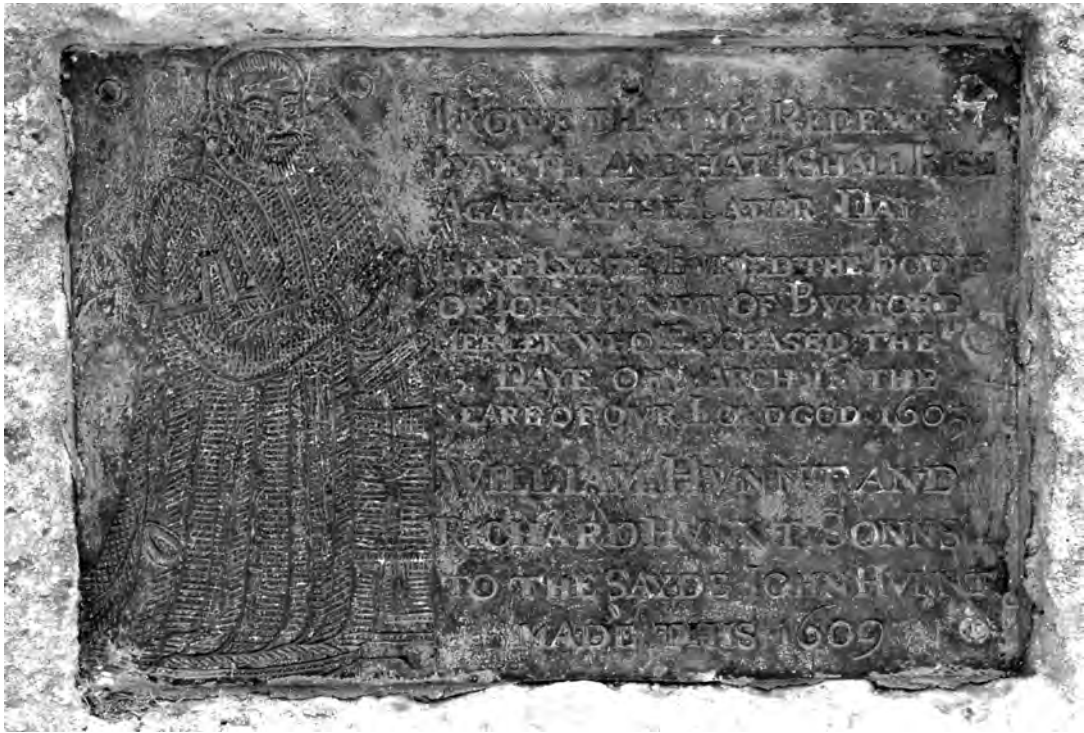 I KOWE THAT MY REDEMER
LYVETH AND HAT I SHALL RISE
AGAINE AT THE LATER DAY
HERE LYETH BVRIED THE BODYE
OF IOHN HVNNT OF BVRFORD
MERCER WHO DECEASED THE
DAYE OF MARCH IN THE
YEARE OF OVR LORD GOD 1608
WILLIAM HVNNT AND
RICHARD HVNNT SONNS
TO THE SAYDE IOHN HVNNT
MADE THIS 1609